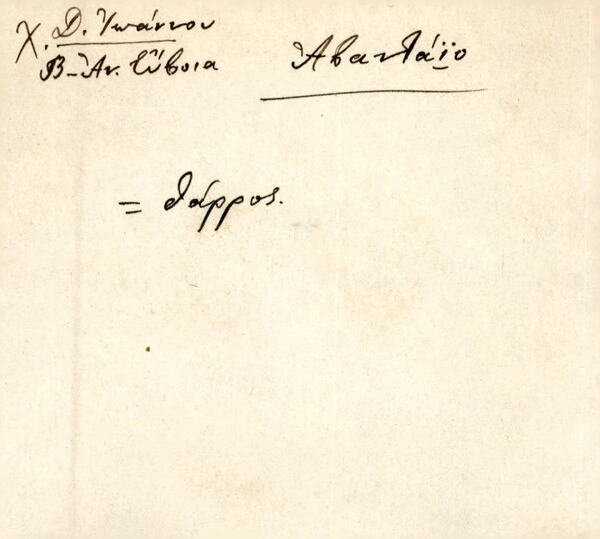 Χ. Δ. Ἰωάννου
Β-Ἀν. Εὔβοια
Ἀβαντάϊο
= θάρρος.